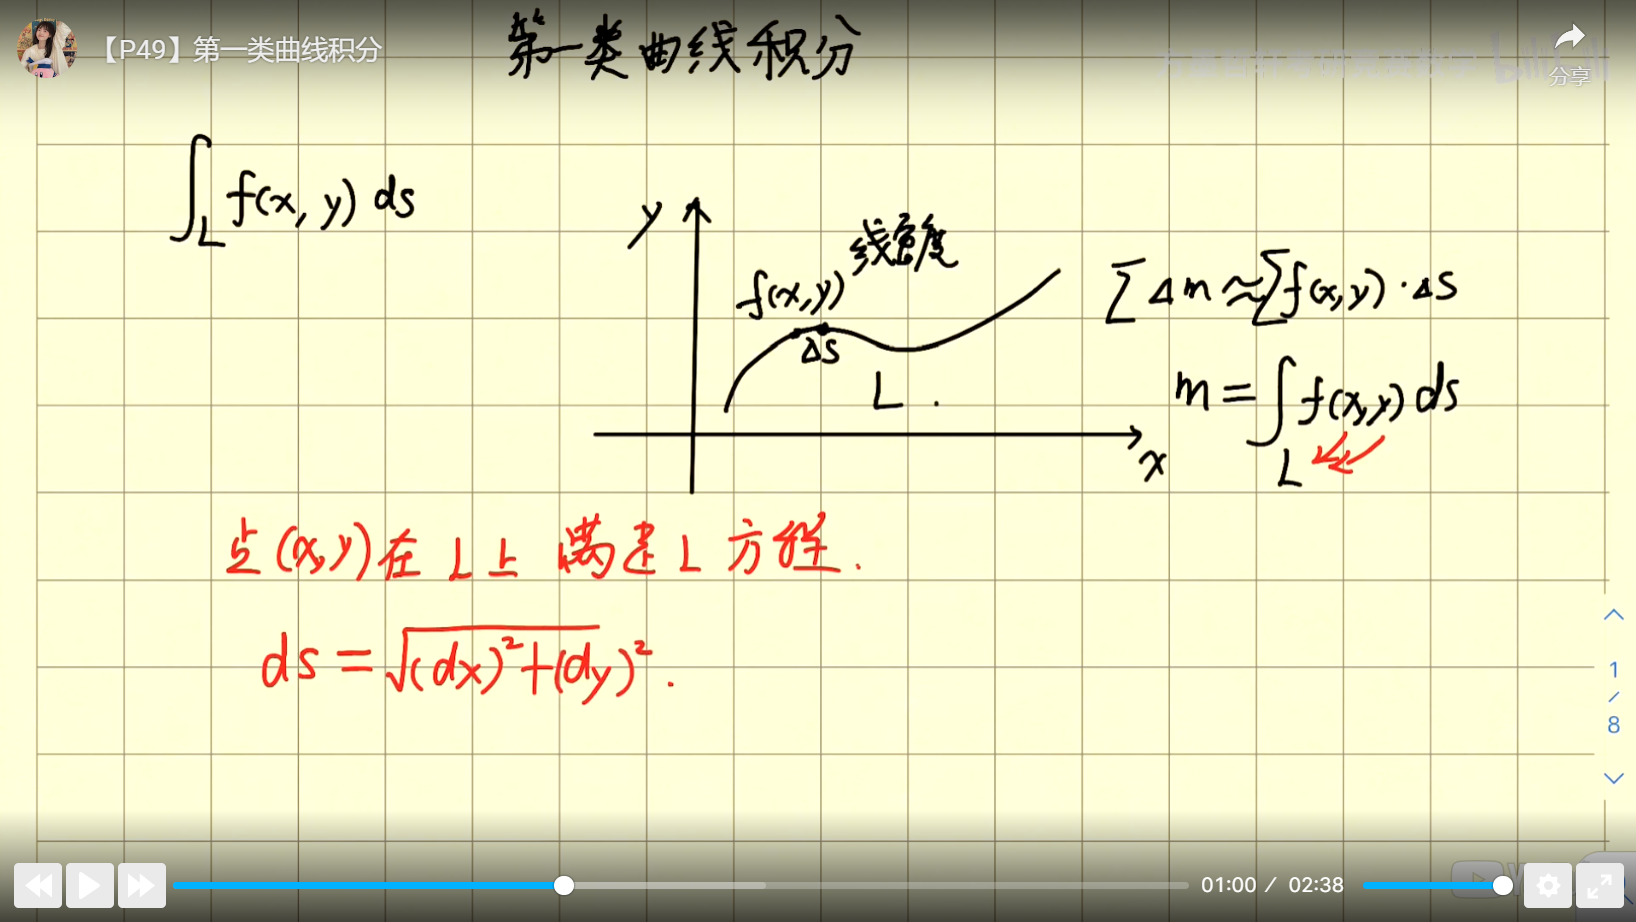 【P49】第一类曲线积分
第一类曲线积分
分享
∫_L f(x, y) ds
y
线密度
f(x,y)
ΔS
L .
x
∑ Δm ≈ ∑ f(x,y) · ΔS
m = ∫_L f(x,y) ds
点(x,y)在 L上 满足 L 方程.
ds = √(dx)²+(dy)² .
1
/
8
01:00 / 02:38